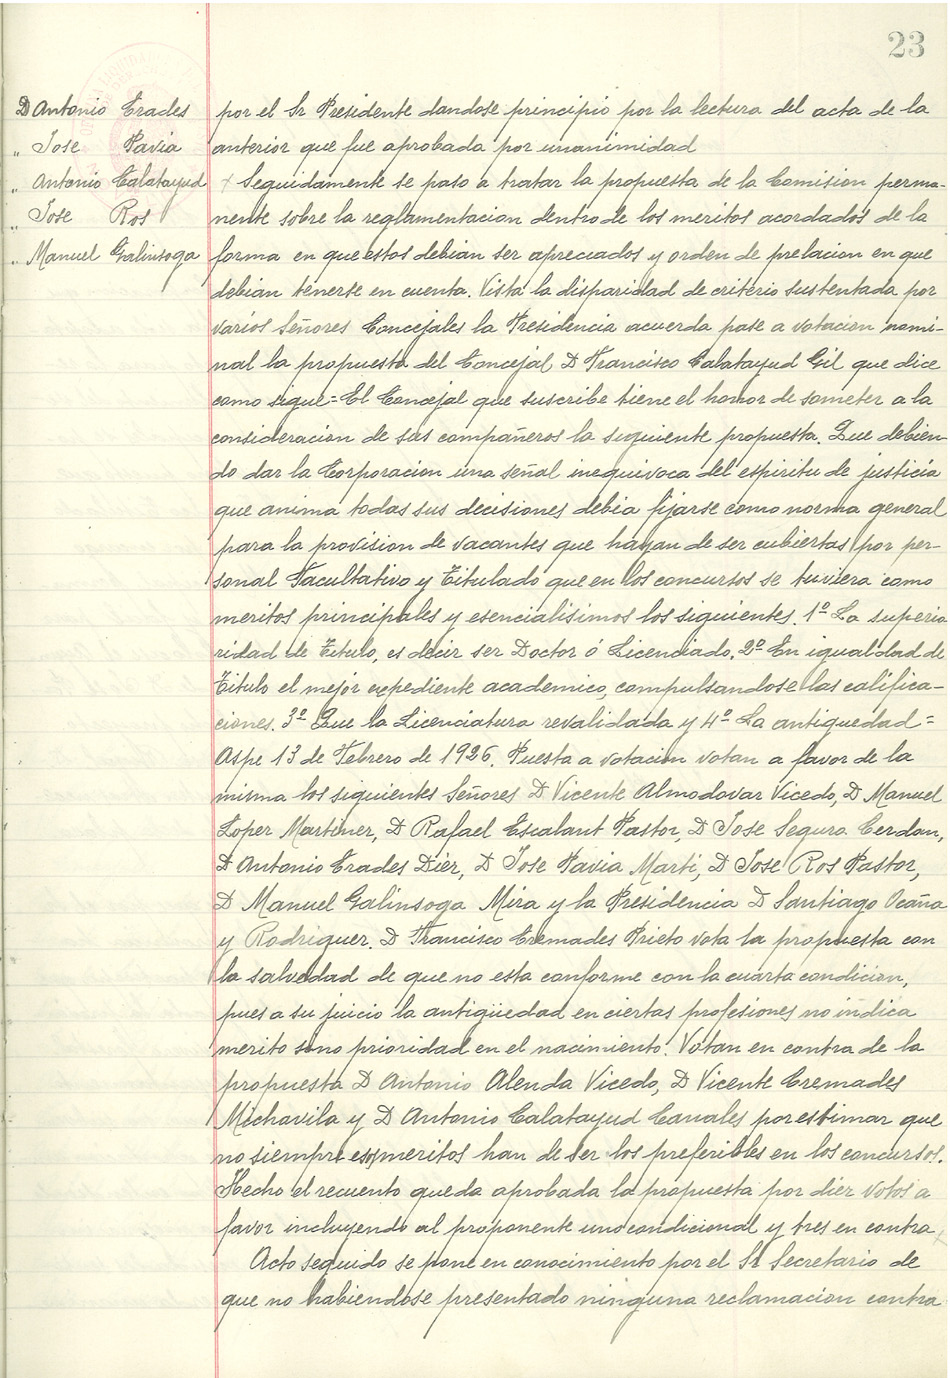 23
D Antonio Erades
„ Jose Pavia
„ Antonio Calatayud
„ Jose Ros
„ Manuel Galinsoga
por el Sr Presidente dandose principio por la lectura del acta de la
anterior que fue aprobada por unanimidad
Seguidamente se paso a tratar la propuesta de la Comision perma-
nente sobre la reglamentacion dentro de los meritos acordados de la
forma en que estos debian ser apreciados y orden de prelacion en que
debian tenerse en cuenta. Vista la disparidad de criterio sustentada por
varios Señores Concejales la Presidencia acuerda pase a votacion nomi-
nal la propuesta del Concejal D Francisco Calatayud Gil que dice
como sigue=El Concejal que suscribe tiene el honor de someter a la
consideracion de sus compañeros la siguiente propuesta. Que debien-
do dar la Corporacion una señal inequivoca del espiritu de justicia
que anima todas sus decisiones debia fijarse como norma general
para la provision de vacantes que hayan de ser cubiertas por per-
sonal Facultativo y Titulado que en los concursos se tuviera como
meritos principales y esencialisimos los siguientes. 1º La superio
ridad de Titulo, es decir ser Doctor ó Licenciado. 2º En igualdad de
Titulo el mejor expediente academico, compulsandose las califica-
ciones. 3º Que la Licenciatura revalidada y 4º La antiguedad=
Aspe 13 de Febrero de 1926. Puesta a votacion votan a favor de la
misma los siguientes Señores D Vicente Almodovar Vicedo, D Manuel
Lopez Martinez, D Rafael Escalant Pastor, D Jose Segura Cerdan,
D Antonio Erades Diez, D Jose Pavia Marti, D Jose Ros Pastor,
D Manuel Galinsoga Mira y la Presidencia D Santiago Ocaña
y Rodriguez. D Francisco Cremades Prieto vota la propuesta con
la salvedad de que no esta conforme con la cuarta condicion,
pues a su juicio la antigüedad en ciertas profesiones no indica
merito sino prioridad en el nacimiento. Votan en contra de la
propuesta D Antonio Alenda Vicedo, D Vicente Cremades
Michavila y D Antonio Calatayud Canales por estimar que
no siempre esos meritos han de ser los preferibles en los concursos.
Hecho el recuento queda aprobada la propuesta por diez votos a
favor incluyendo al proponente uno condicional y tres en contra
Acto seguido se pone en conocimiento por el Sr Secretario de
que no habiendose presentado ninguna reclamacion contra